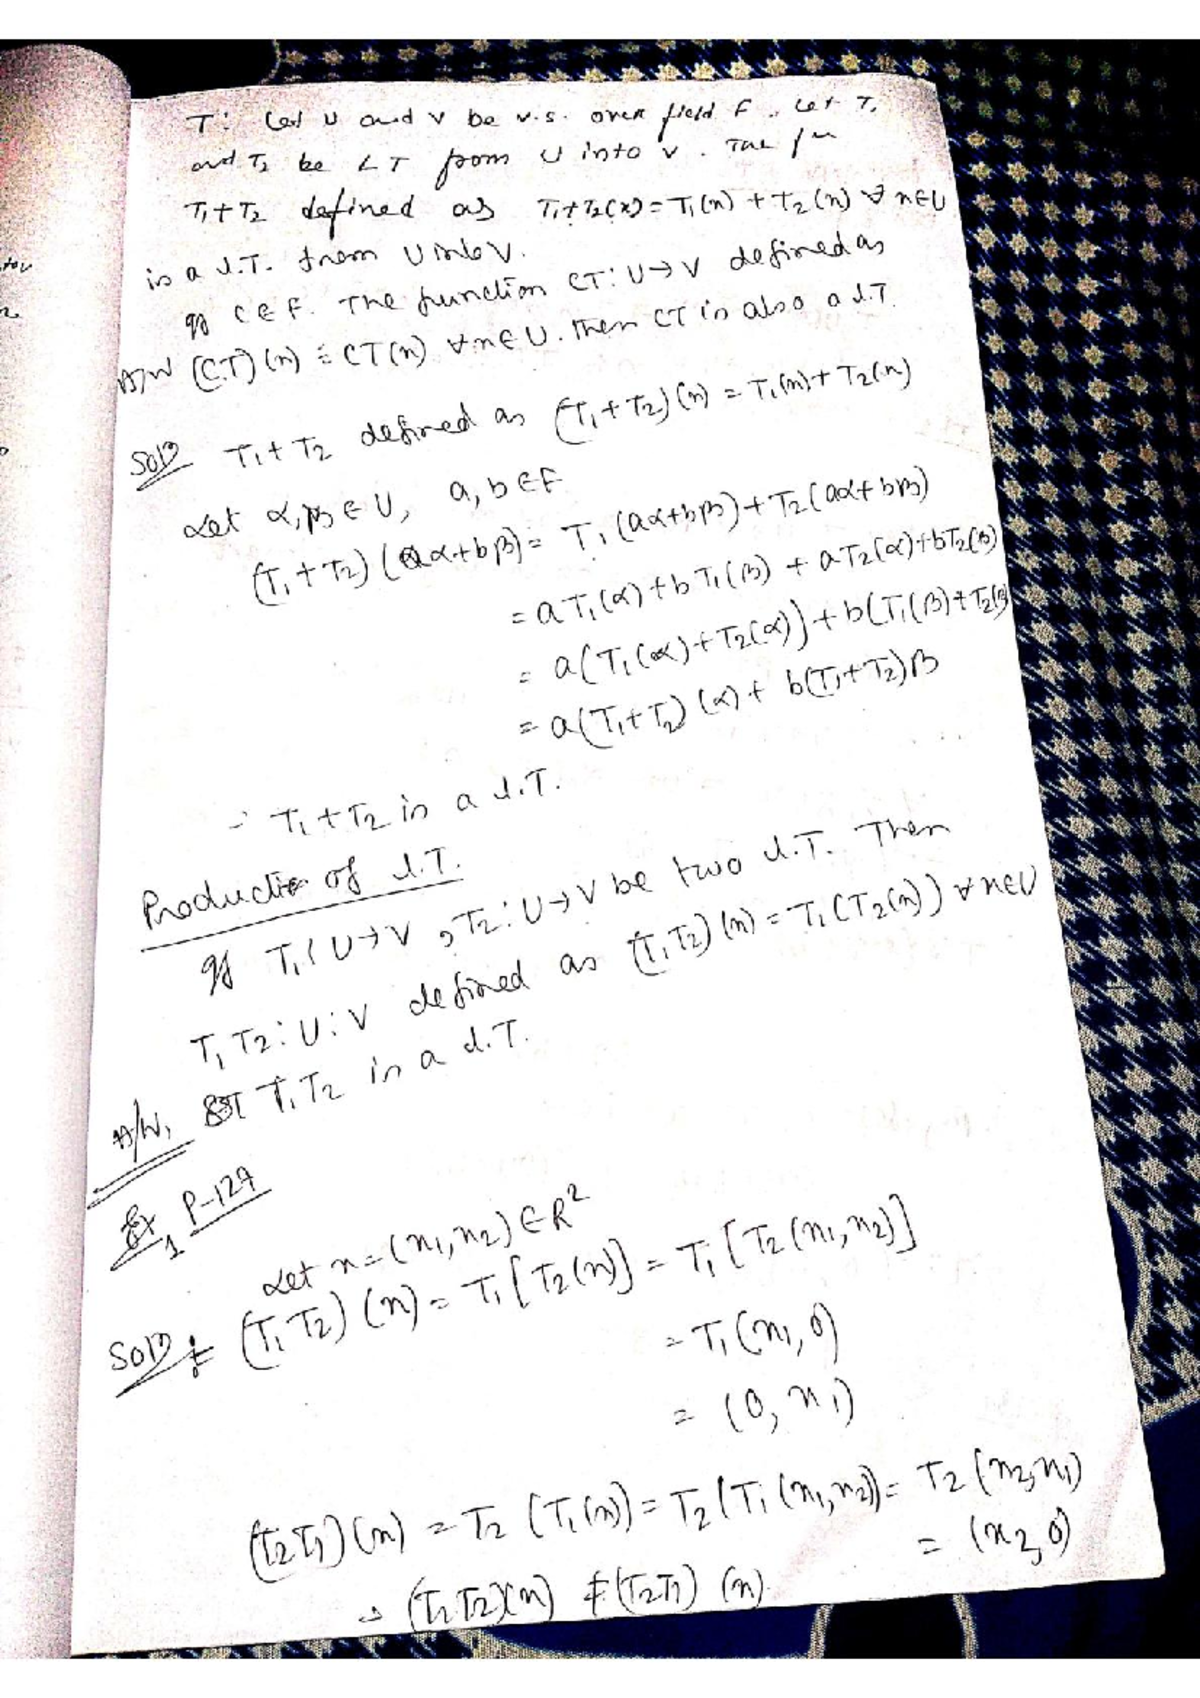 T: Let U and V be v.s. over field F. Let T1
and T2 be LT from U into V. The fn
T1+T2 defined as T1+T2(x) = T1(n) + T2(n) ∀ n∈U
is a L.T. from U into V.
If C∈F. The function CT: U→V defined as
H/W (CT)(n) = CT(n) ∀ n∈U. Then CT is also a L.T.
Soln T1+T2 defined as (T1+T2)(n) = T1(n)+T2(n)
Let α,β∈U, a,b∈F
(T1+T2)(aα+bβ) = T1(aα+bβ)+T2(aα+bβ)
= aT1(α)+bT1(β) + aT2(α)+bT2(β)
= a(T1(α)+T2(α))+b(T1(β)+T2(β)
= a(T1+T2)(α)+ b(T1+T2)β
∴ T1+T2 is a L.T.
Production of L.T.
If T1: U→V, T2: U→V be two L.T. Then
T1T2: U:V defined as (T1T2)(n) = T1(T2(n)) ∀ n∈U
H/W, T1T2 is a L.T.
Ex 1 P-127
Let n=(n1,n2)∈R²
Soln: (T1T2)(n) = T1[T2(n)] = T1[T2(n1,n2)]
= T1(n1,0)
= (0,n1)
(T2T1)(n) = T2(T1(n)) = T2(T1(n1,n2)) = T2(n2,n1)
= (x2,0)
→ (T1T2)(n) ≠ (T2T1)(n).